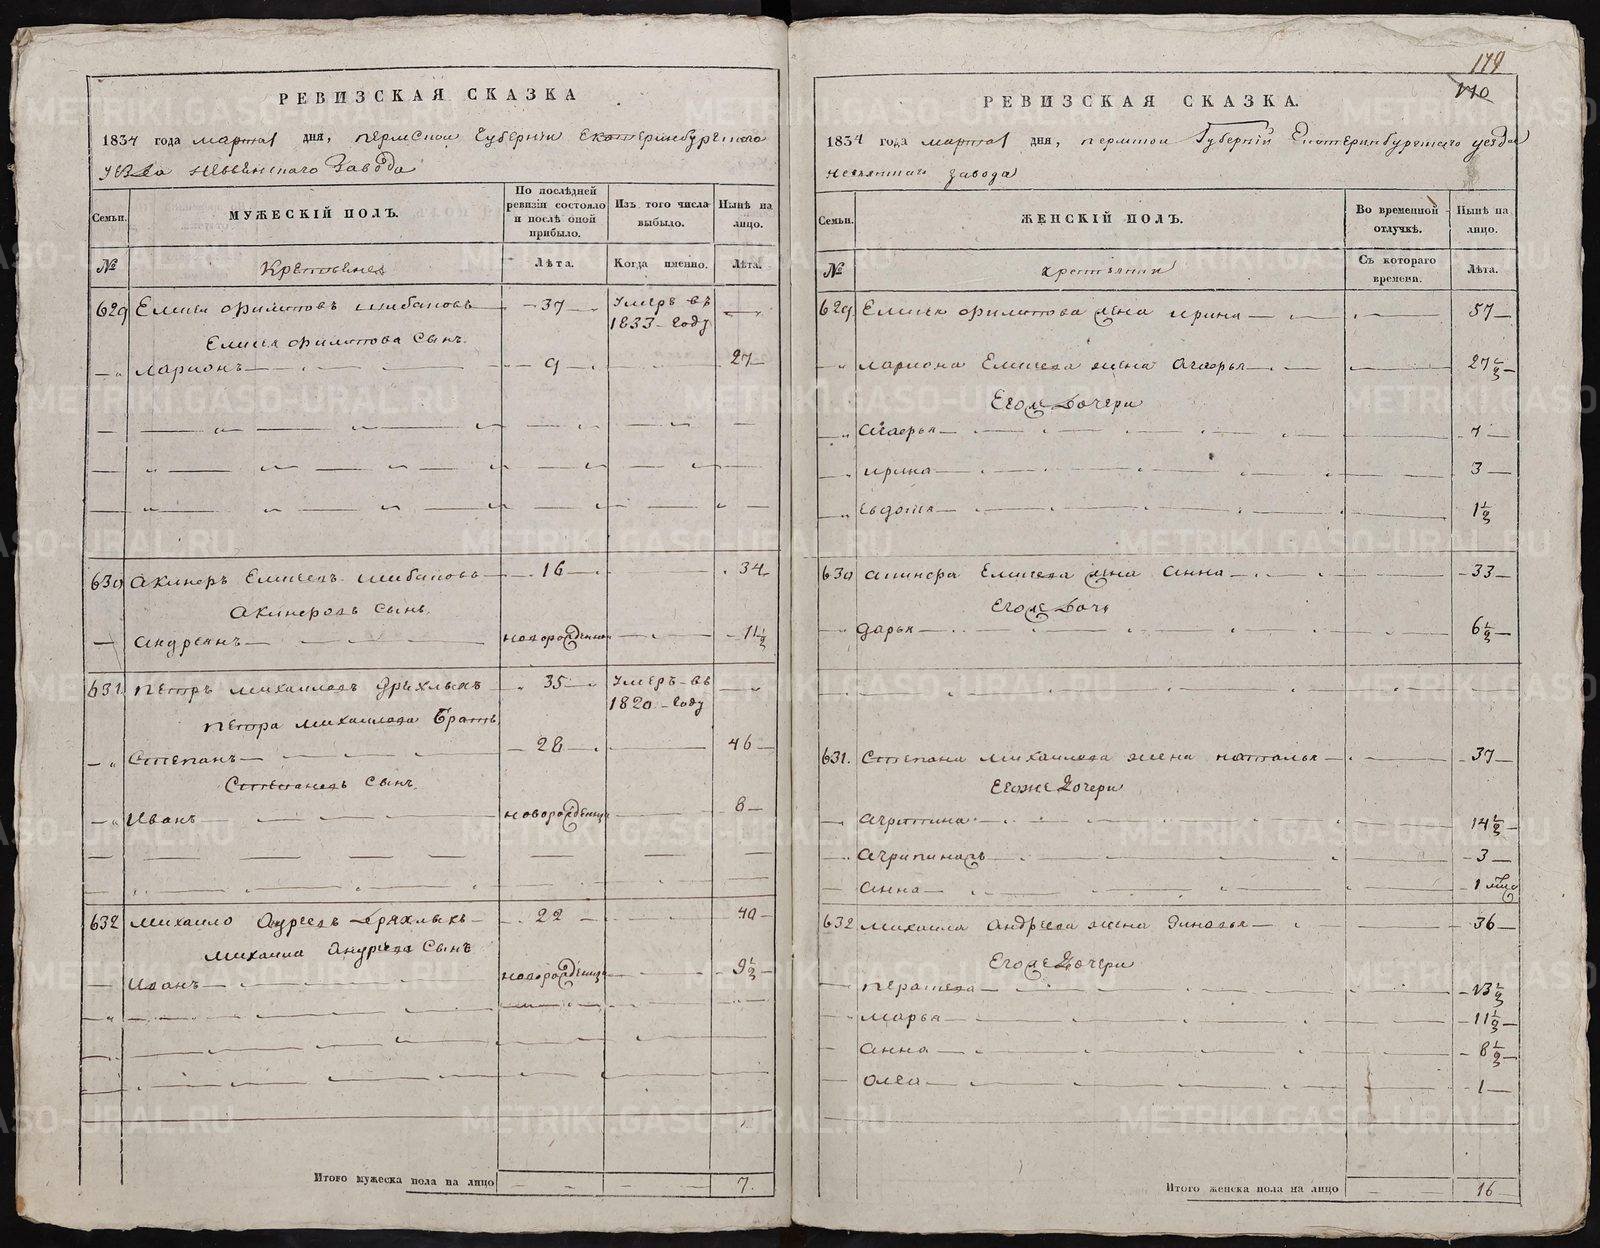 РЕВИЗСКАЯ СКАЗКА
1834 года марта дня, пермской Губернии Екатеринбургского
уезда Невьянского Завода
Семьи.
МУЖЕСКІЙ ПОЛЪ.
По послѣдней ревизіи состояло и послѣ оной прибыло.
Изъ того числа выбыло.
Нынѣ на лицо.
№
Крестьянѣ
Лѣта.
Когда именно.
Лѣта.
629 Елисей Филиповъ шибановъ 37 Умеръ въ 1833 Году
Елисея Филипова Сынъ
Ларионъ 9 27
630 Акинѳъ Елисеевъ шибановъ 16 34
Сынъ
Андреянъ новорожденной 11½
631 Петръ михаиловъ Дряхлыхъ 35 Умеръ въ 1820 Году
петра михаилова Братъ
Степанъ 28 46
Степановъ Сынъ
Иванъ новорожденной 8
632 михаило Андреевъ Дряхлыхъ 22 40
михаила Андреева Сынъ
Иванъ новорожденной 9½
Итого мужеска пола на лицо 7.
179
170
РЕВИЗСКАЯ СКАЗКА.
1834 года марта дня, пермской Губерній Екатеринбургскаго уезда
завода
Семьи.
ЖЕНСКІЙ ПОЛЪ.
Во временной отлучкѣ.
Нынѣ на лицо.
№
Съ котораго времени.
Лѣта.
629 Елисея Филипова жена ирина 57
Лариона Елисеева жена 27½
Егоже Дочери
7
ирина 3
Евдотья 1½
630 Елисеева жена Анна 33
Егоже Дочь
Дарья 6½
631. Степана михаилова жена наталья 37
Егоже Дочери
14½
3
Анна 1
632 михаила Андреева жена 36
Егоже Дочери
13½
марья 11½
Анна 8½
1
Итого женска пола на лицо 16
METRIKI.GASO-URAL.RU